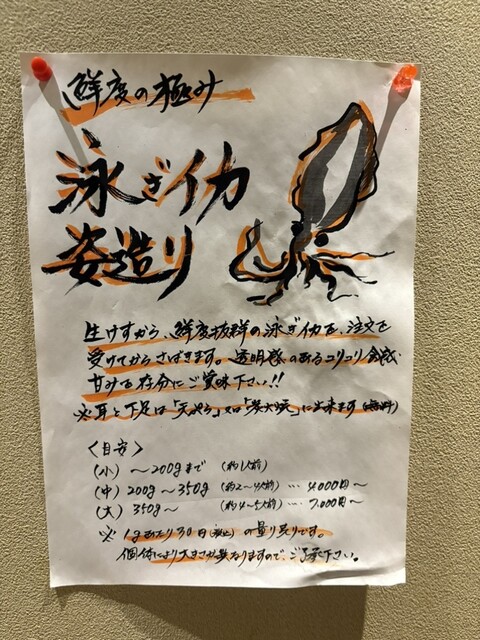 鮮度の極み
泳ぎイカ
姿造り
生けすから、鮮度抜群の泳ぎイカを、注文を
受けてからさばきます。透明感のあるコリコリ食感、
甘みを存分にご賞味下さい!!
※耳と下足は「天ぷら」又は「炭火焼」に出来ます(無料)
〈目安〉
(小) 〜200gまで (約1人前)
(中) 200g〜350g (約2〜4人前) … 4000円〜
(大) 350g〜 (約4〜5人前) … 7,000円〜
※ 1gあたり30円(税込)の量り売りです。
個体により大きさが異なりますので、ご了承下さい。